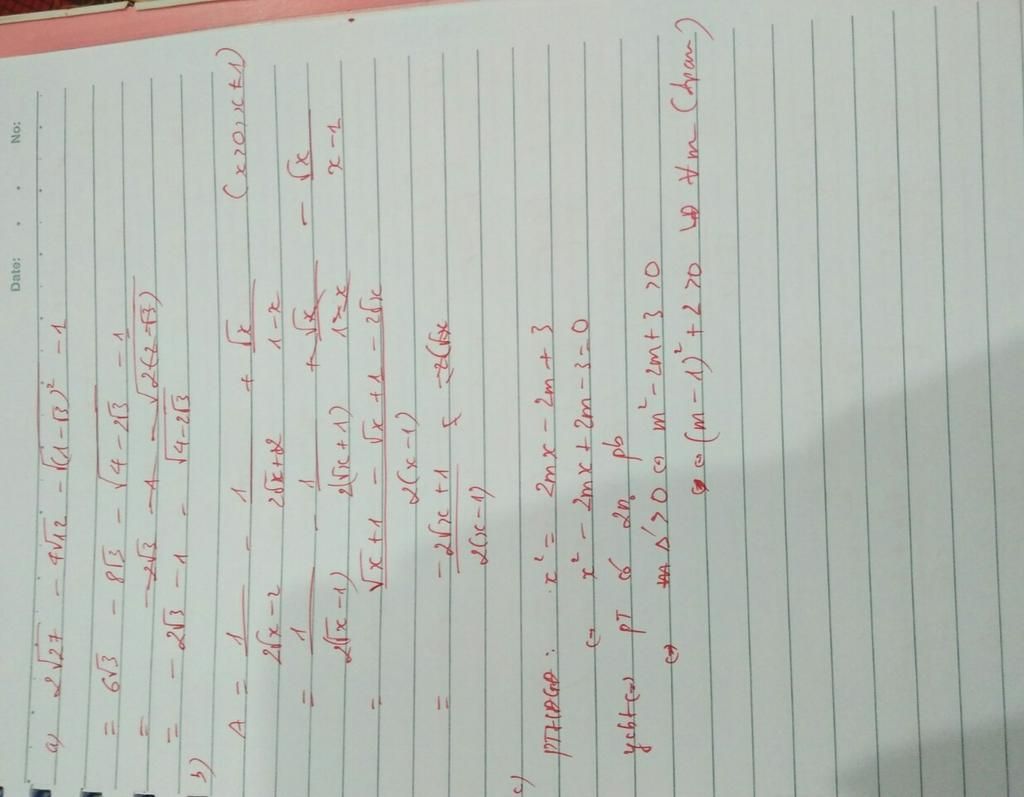 Date: No:
a) 2√27 - 4√12 - √(1-√3)² - 1
= 6√3 - 8√3 - √4-2√3 - 1
= -2√3 - 1 - √2(2-√3)
= -2√3 - 1 - √4-2√3
b)
A = 1/(2√x-2) - 1/(2√x+2) + √x/(1-x) (x≥0; x≠1)
= 1/(2(√x-1)) - 1/(2(√x+1)) + √x/(1-x) - √x/(x-1)
= (√x+1 - √x+1 - 2√x)/(2(x-1))
= (-2√x+1)/(2(x-1))
c)
PTHĐGĐ: x² = 2mx - 2m + 3
(=) x² - 2mx + 2m - 3 = 0
ycbt (=) PT có 2n₀ pb
(=) Δ' > 0 (=) m² - 2m + 3 > 0
(=) (m-1)² + 2 > 0 ∀m (đpcm)